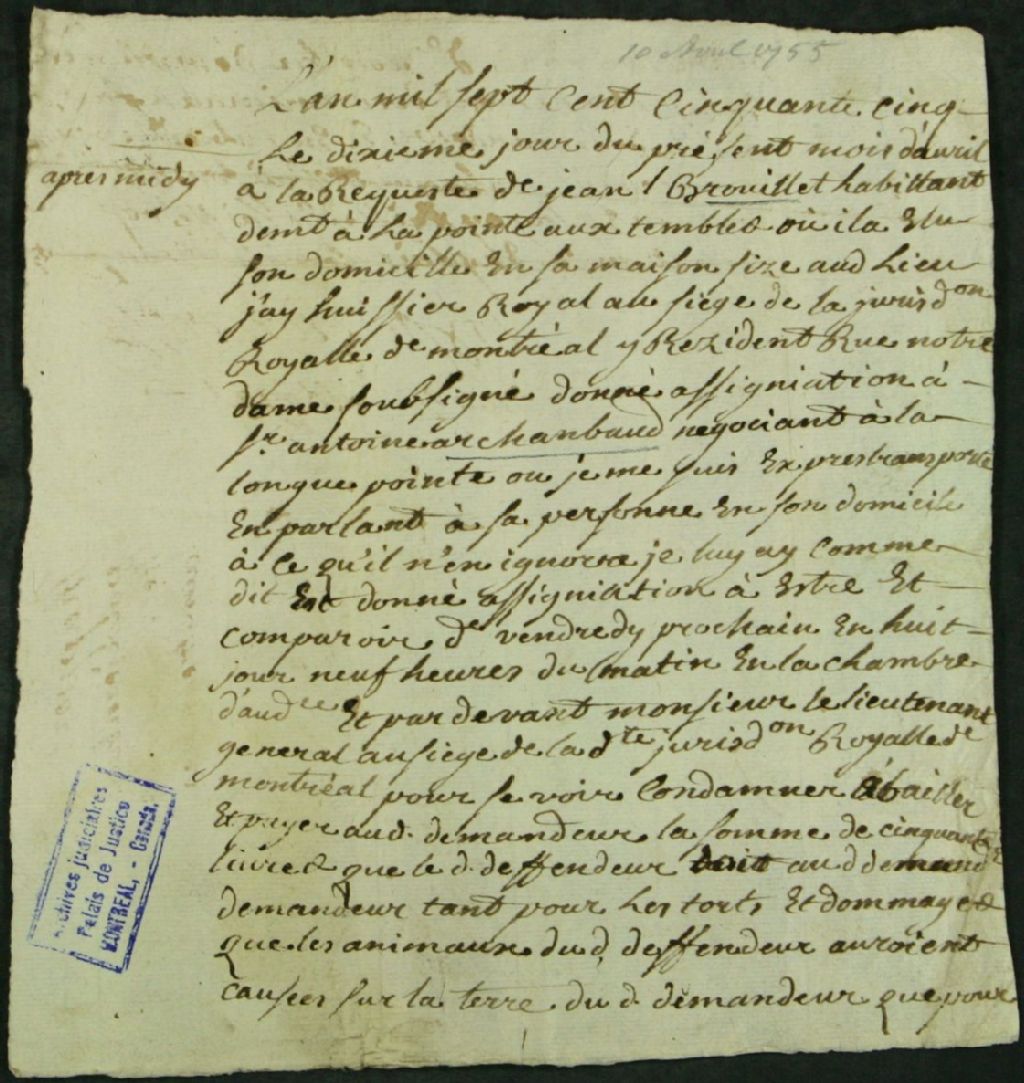 10 Avril 1755
L'an mil sept Cent Cinquante cinq
Le dixieme jour du présent mois davril
apres midy
à la Requeste de jean l Brouillet habittant
demt à La pointe aux trembles où il a Elu
son domicille En sa maison size aud Lieu
j'ay huissier Royal au siege de la jurisdon
Royalle de montréal y Rezident Rue notre
dame soubsigné donné assigniation à
sr antoine archanbaud negociant à la
longue pointe ou je me suis Exprestransporté
En parlant à sa personne En son domicile
à ce qu'il n'en ignorre je luy ay comme
dit Est donné assigniation à Estre Et
comparoir de vendredy prochain En huit
jour neuf heures du matin En la chambre
d'audce Et par devant monsieur le lieutenant
general au siege de la dte jurisdon Royalle de
montréal pour se voir Condamner à bailler
Et payer aud. demandeur la somme de cinquante
livres que le d. deffendeur doit au d demand
demandeur tant pour Les torts Et dommages
que les animaux du d. deffendeur auroient
causés sur la terre du d. demandeur que pour
Archives judiciaires
Palais de Justice
MONTREAL, - Canada.